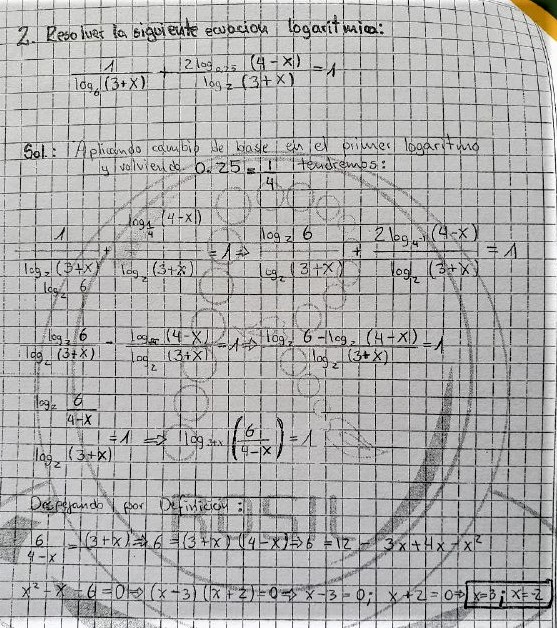 2. Resolver la siguiente ecuacion logaritmica:
1/log₆(3+x) + 2log₀.₂₅(4-x)/log₂(3+x) = 1
Sol.: Aplicando cambio de base en el primer logaritmo
y volviendo 0.25 = 1/4 tendremos:
1/(log₂(3+x)/log₂ 6) + log_{1/4}(4-x)/log₂(3+x) = 1 ⇒ log₂ 6/log₂(3+x) + 2log_{4⁻¹}(4-x)/log₂(3+x) = 1
log₂ 6/log₂(3+x) - log₂(4-x)/log₂(3+x) = 1 ⇒ (log₂ 6 - log₂(4-x))/log₂(3+x) = 1
log₂(6/(4-x))/log₂(3+x) = 1 ⇒ log₃₊ₓ(6/(4-x)) = 1
Despejando por Definición:
6/(4-x) = (3+x) ⇒ 6 = (3+x)(4-x) ⇒ 6 = 12 - 3x + 4x - x²
x² - x - 6 = 0 ⇒ (x-3)(x+2) = 0 ⇒ x-3 = 0; x+2 = 0 ⇒ x=3; x=-2